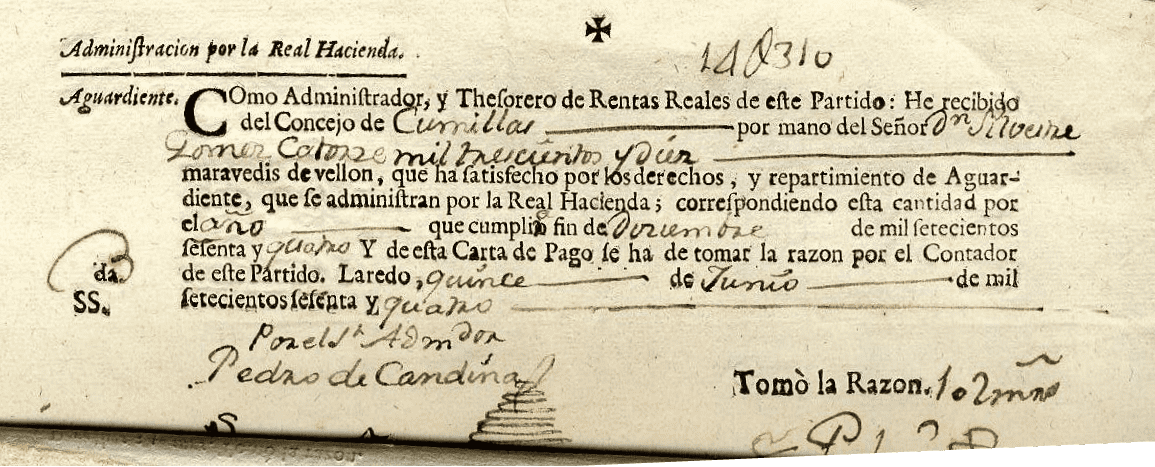 ✠
Administracion por la Real Hacienda.
14U310
Aguardiente.
COmo Administrador, y Thesorero de Rentas Reales de este Partido: He recibido
del Concejo de Cumillas por mano del Señor Dn Silvestre
Gomez Catorze mil trescientos y diez
maravedis de vellon, que ha satisfecho por los derechos, y repartimiento de Aguar-
diente, que se administran por la Real Hacienda; correspondiendo esta cantidad por
el año que cumplirà fin de Diziembre de mil setecientos
sesenta y quatro Y de esta Carta de Pago se ha de tomar la razon por el Contador
da. de este Partido. Laredo, quince de Junio de mil
SS. setecientos sesenta y quatro
Por el Sr Admdor
Pedro de Candina
Tomò la Razon. 102 mrs